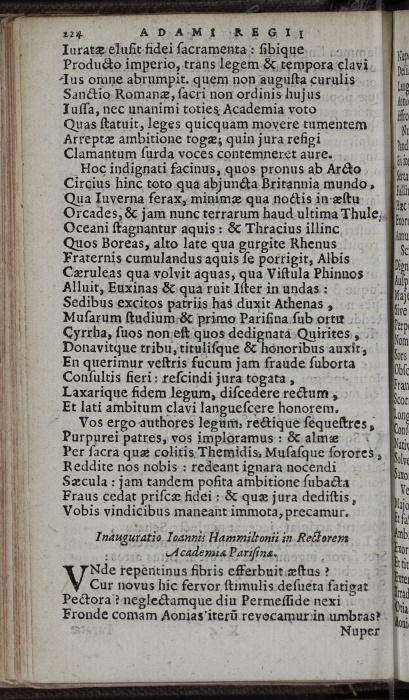 224 ADAMI REGII
Iuratæ elusit fidei sacramenta : sibique
Producto imperio, trans legem & tempora clavi
Ius omne abrumpit. quem non augusta curulis
Sanctio Romanæ, sacri non ordinis hujus
Iussa, nec unanimi toties Academia voto
Quas statuit, leges quicquam movere tumentem
Arreptæ ambitione togæ; quin jura refigi
Clamantum surda voces contemneret aure.
Hoc indignati facinus, quos pronus ab Arcto
Circius hinc toto qua abjuncta Britannia mundo,
Qua Iuverna ferax, minimæ qua noctis in æstu
Orcades, & jam nunc terrarum haud ultima Thule,
Oceani stagnantur aquis : & Thracius illinc
Quos Boreas, alto late qua gurgite Rhenus
Fraternis cumulandus aquis se porrigit, Albis
Cæruleas qua volvit aquas, qua Vistula Phinnos
Alluit, Euxinas & qua ruit Ister in undas :
Sedibus excitos patriis has duxit Athenas,
Musarum studium & primo Parisina sub ortu
Cyrrha, suos non est quos dedignata Quirites,
Donavitque tribu, titulisque & honoribus auxit,
En querimur vestris fucum jam fraude suborta
Consultis fieri : rescindi jura togata,
Laxarique fidem legum, discedere rectum,
Et lati ambitum clavi languescere honorem.
Vos ergo authores legum, rectique sequestres,
Purpurei patres, vos imploramus : & almæ
Per sacra quæ colitis Themidis, Musasque sorores,
Reddite nos nobis : redeant ignara nocendi
Sæcula : jam tandem posita ambitione subacta
Fraus cedat priscæ fidei : & quæ jura dedistis,
Vobis vindicibus maneant immota, precamur.
Inauguratio Ioannis Hammiltonii in Rectorem
Academiæ Parisinæ.
VNde repentinus fibris efferbuit æstus ?
Cur novus hic fervor stimulis desueta fatigat
Pectora ? neglectamque diu Permesside nexi
Fronde comam Aonias iterū revocamur in umbras?
Nuper